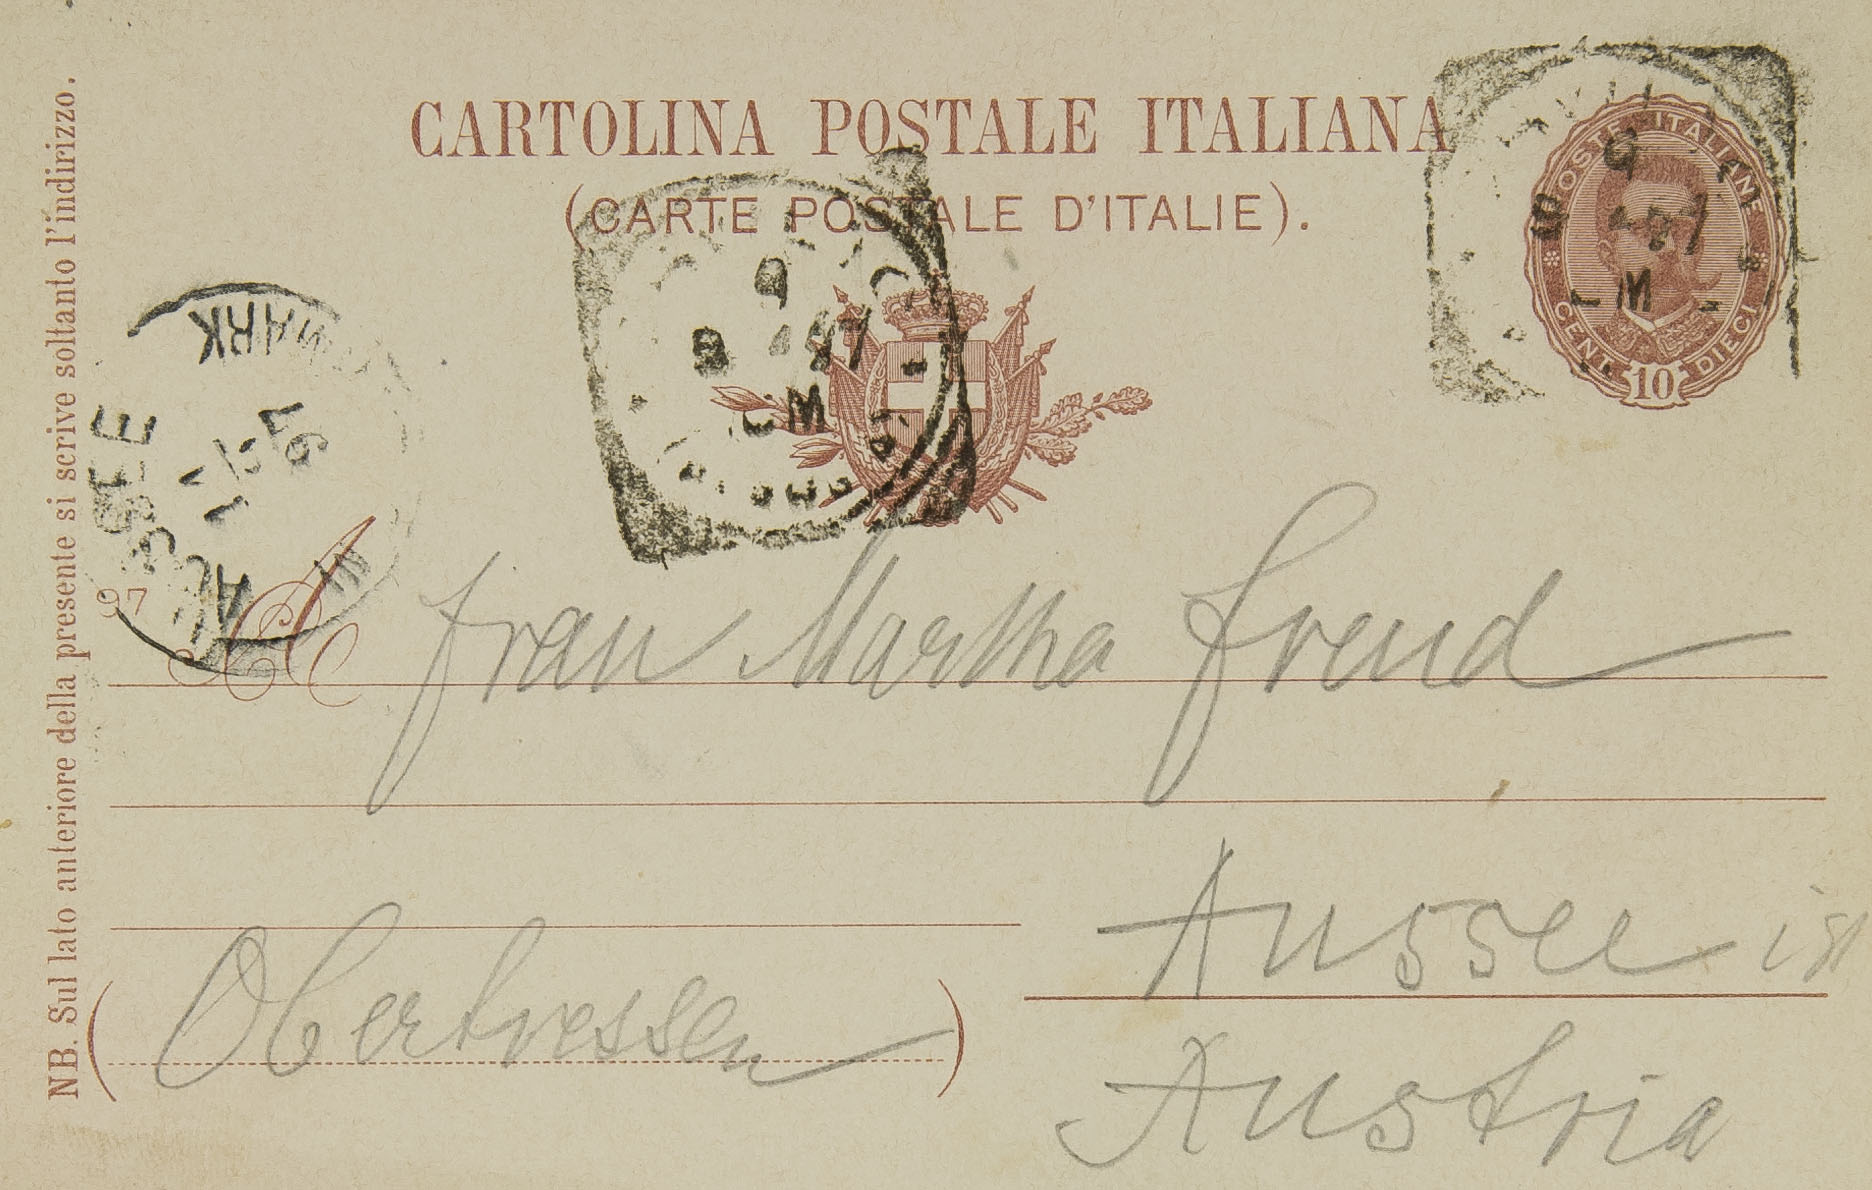 CARTOLINA POSTALE ITALIANA
(CARTE POSTALE D'ITALIE).
POSTE ITALIANE
CENT. 10 DIECI
9
8 97
M
9
8 97
M
AUSSEE IN MARK
97
NB. Sul lato anteriore della presente si scrive soltanto l'indirizzo.
97
A Frau Martha Freud
Aussee
(Obertressen)
Austria